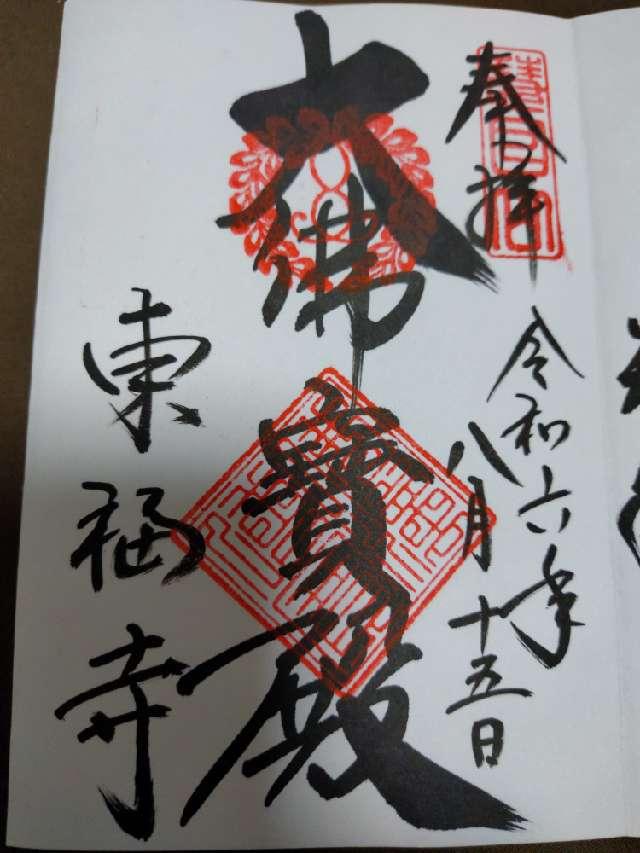 奉拝
令和六年
八月十五日
大佛寶殿
東福寺